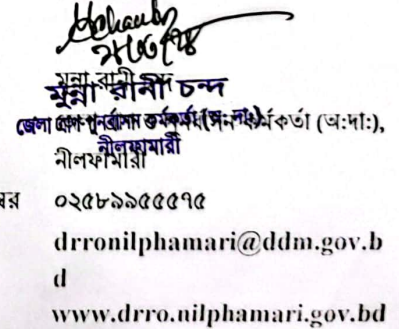 মুন্না রানী চন্দ
মুন্না রানী চন্দ
জেলা ত্রাণ পুনর্বাসন কর্মকর্তা (অ:দা:)
কর্মকর্তা (অ:দা:),
নীলফামারী
নীলফামারী
০২৫৮৯৯৫৫৫৭৫
drronilphamari@ddm.gov.b
d
www.drro.nilphamari.gov.bd